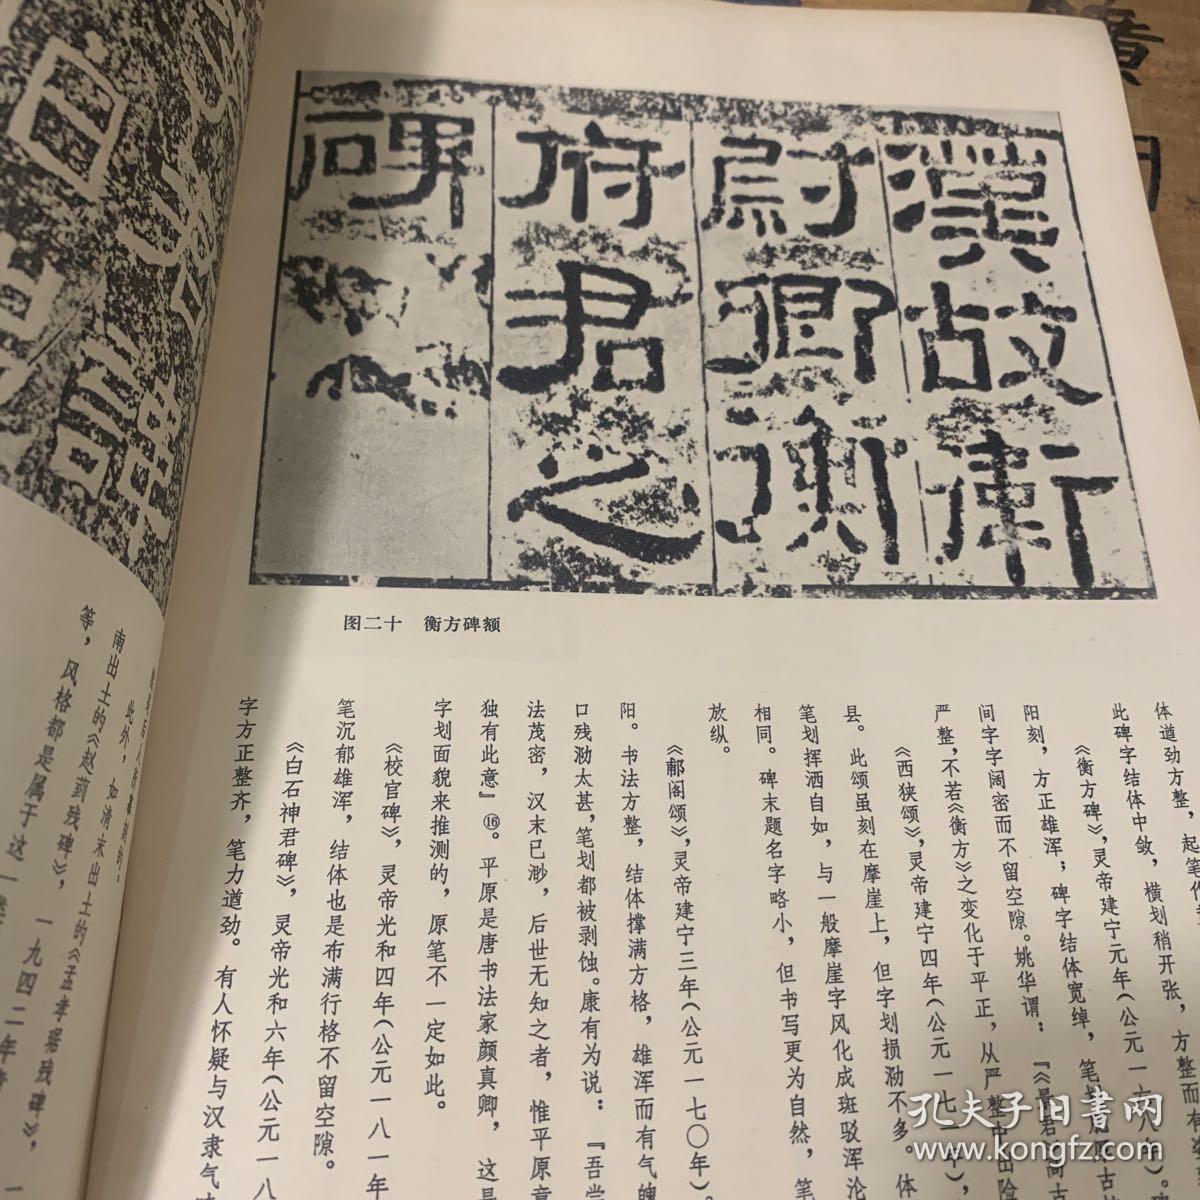 漢故衛
尉卿衡
府君之
碑
图二十 衡方碑额
体遒劲方整,起笔
此碑字结体中敛,横划稍开张,方整而有
《衡方碑》,灵帝建宁元年(公元一六八年)。
阳刻,方正雄浑;碑字结体宽绰,笔
间字字阔密而不留空隙。姚华谓:『《景君》高古
严整,不若《衡方》之变化于平正,从严整中出险
《西狭颂》,灵帝建宁四年(公元一七
县。此颂虽刻在摩崖上,但字划损泐不多。体
笔划挥洒自如,与一般摩崖字风化成斑驳浑沦
相同。碑末题名字略小,但书写更为自然,笔
放纵。
《郙阁颂》,灵帝建宁三年(公元一七〇年)。
阳。书法方整,结体撑满方格,雄浑而有气魄
口残泐太甚,笔划都被剥蚀。康有为说:『吾尝
法茂密,汉末已渺,后世无知之者,惟平原意
独有此意』⑯。平原是唐书法家颜真卿,这是
字划面貌来推测的,原笔不一定如此。
《校官碑》,灵帝光和四年(公元一八一年
笔沉郁雄浑,结体也是布满行格不留空隙。
《白石神君碑》,灵帝光和六年(公元一八
字方正整齐,笔力遒劲。有人怀疑与汉隶气
此外,如清末出土的《孟孝琚残碑》,一
南出土的《赵菿残碑》,一九四二年
等,风格都是属于这一类
孔夫子旧书网
www.kongfz.com